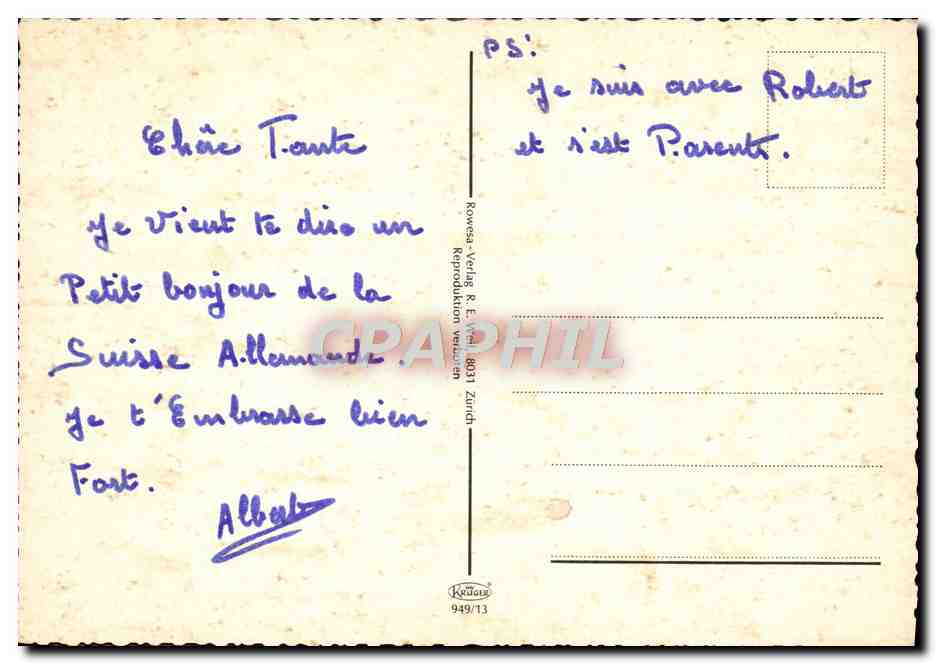 Chère Tante
Je Vient te dire un
Petit bonjour de la
Suisse Allemande.
Je t'Embrasse bien
Fort.
Albert
PS:
Je suis avec Robert
et s'est Parents.
Rowesa-Verlag R. E. Weill, 8031 Zürich
Reproduktion verboten
CPAPHIL
KRÜGER
949/13